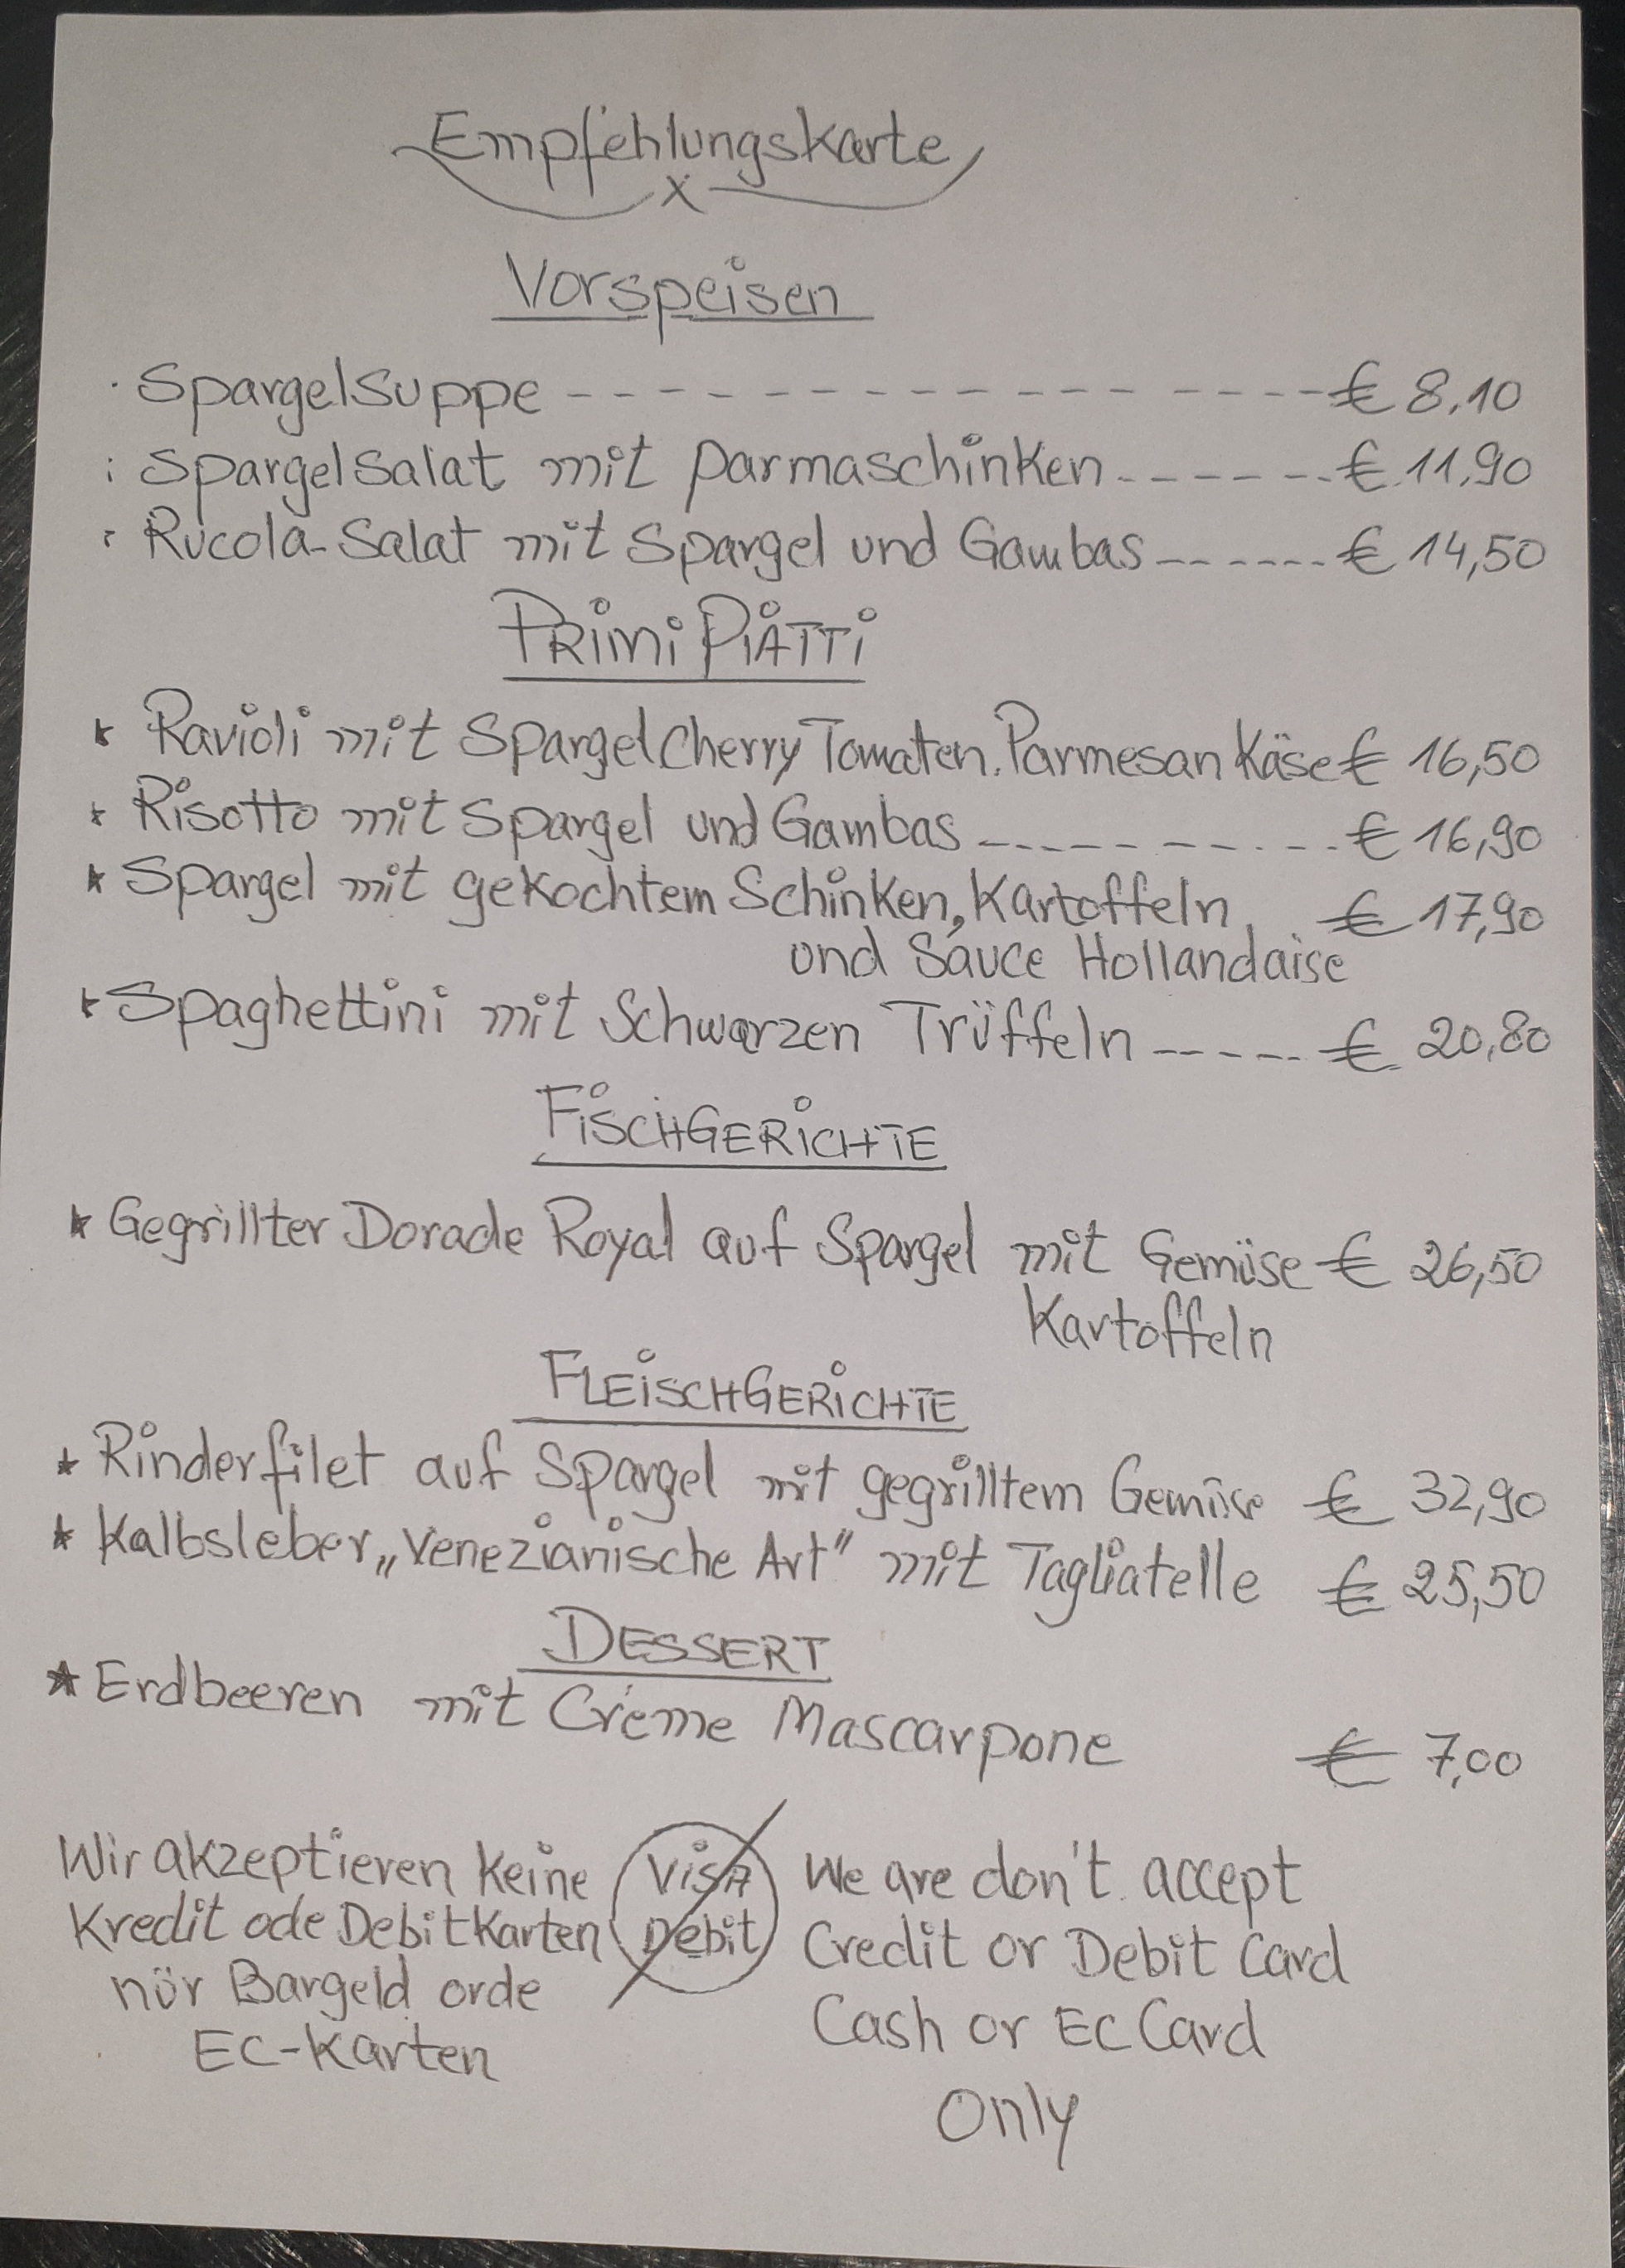 Empfehlungskarte
x
Vorspeisen
· Spargelsuppe ---------------- € 8,10
Spargelsalat mit parmaschinken ------ € 11,90
Rucola-Salat mit Spargel und Gambas ------ € 14,50
PRiMi PiATTi
* Ravioli mit Spargel Cherry Tomaten. Parmesan Käse € 16,50
* Risotto mit Spargel und Gambas ----------- € 16,90
* Spargel mit gekochtem Schinken, Kartoffeln € 17,90
und Sauce Hollandaise
* Spaghettini mit Schwarzen Trüffeln ----- € 20,80
FiSCHGERiCHTE
* Gegrillter Dorade Royal auf Spargel mit Gemüse € 26,50
Kartoffeln
FLEiSCHGERiCHTE
* Rinderfilet auf Spargel mit gegrilltem Gemüse € 32,90
* Kalbsleber „Venezianische Art" mit Tagliatelle € 25,50
DESSERT
* Erdbeeren mit Creme Mascarpone € 7,00
Wir akzeptieren keine
Kredit ode Debitkarten
nür Bargeld orde
EC-Karten
ViSA
Debit
We are don't accept
Credit or Debit Card
Cash or EC Card
Only